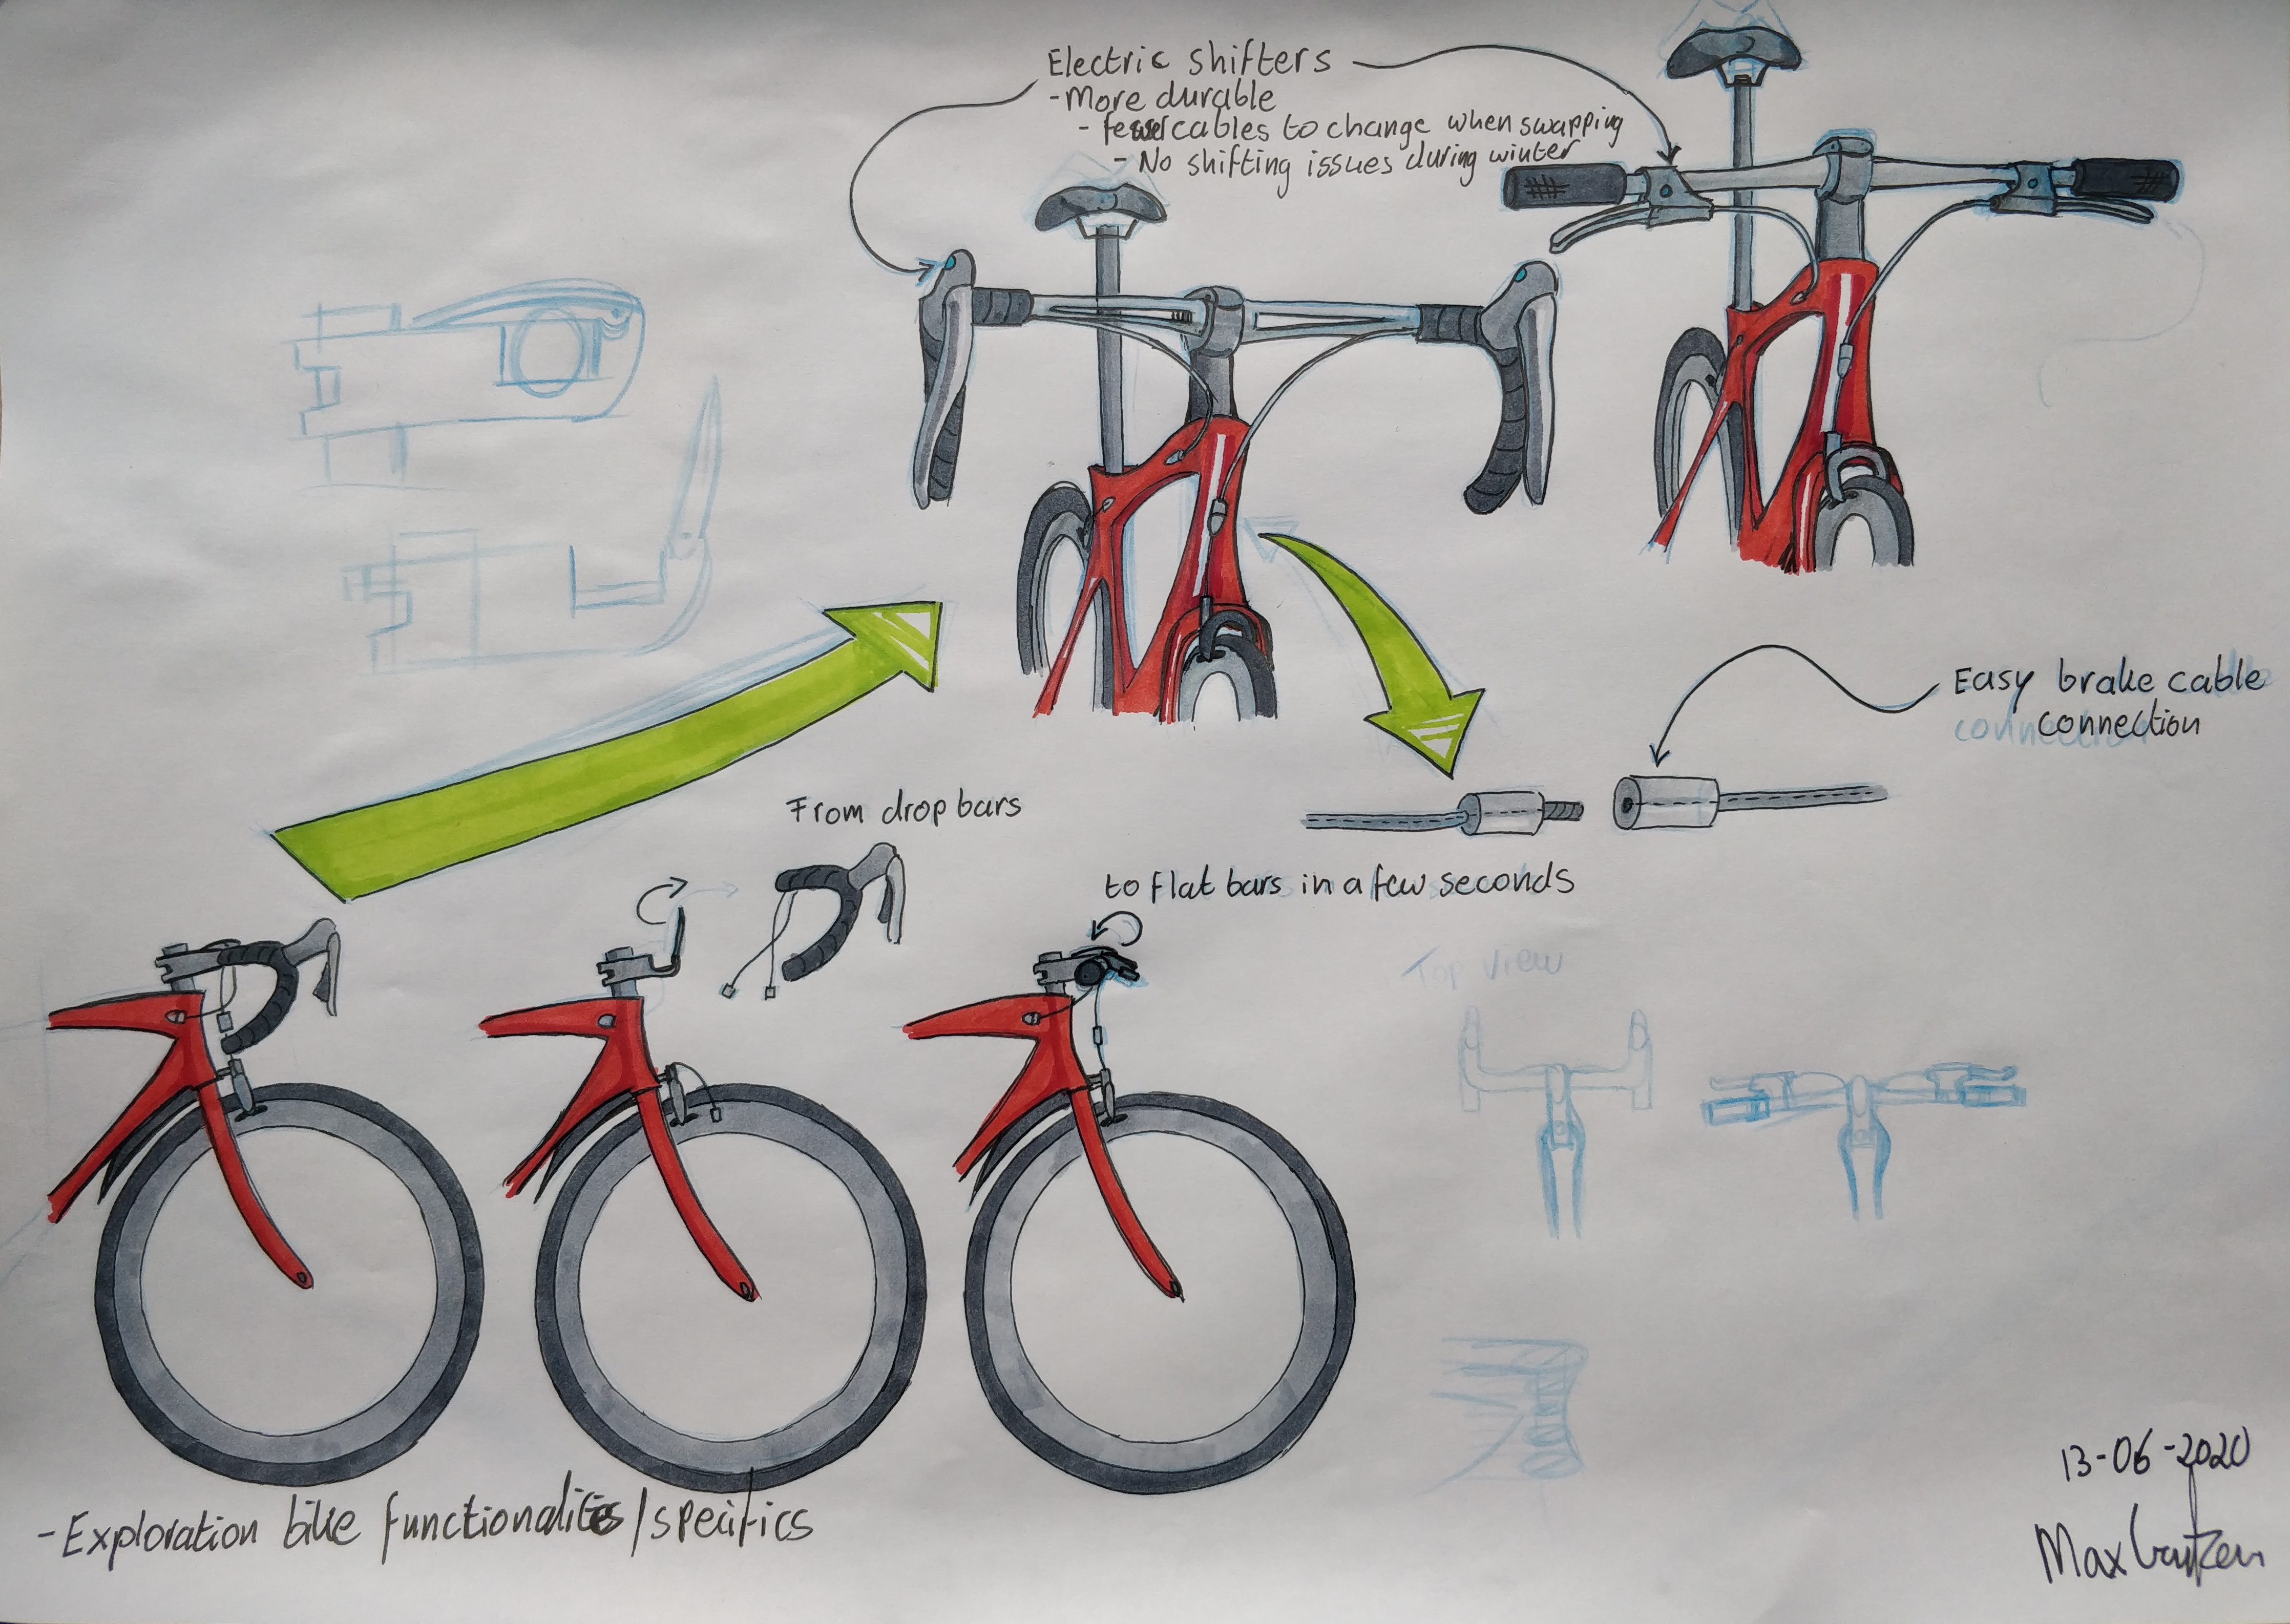 Electric shifters
-More durable
- fewer cables to change when swapping
- No shifting issues during winter
Easy brake cable
connection
From drop bars
to flat bars in a few seconds
Top view
13-06-2020
Max
-Exploration bike functionalities/specifics